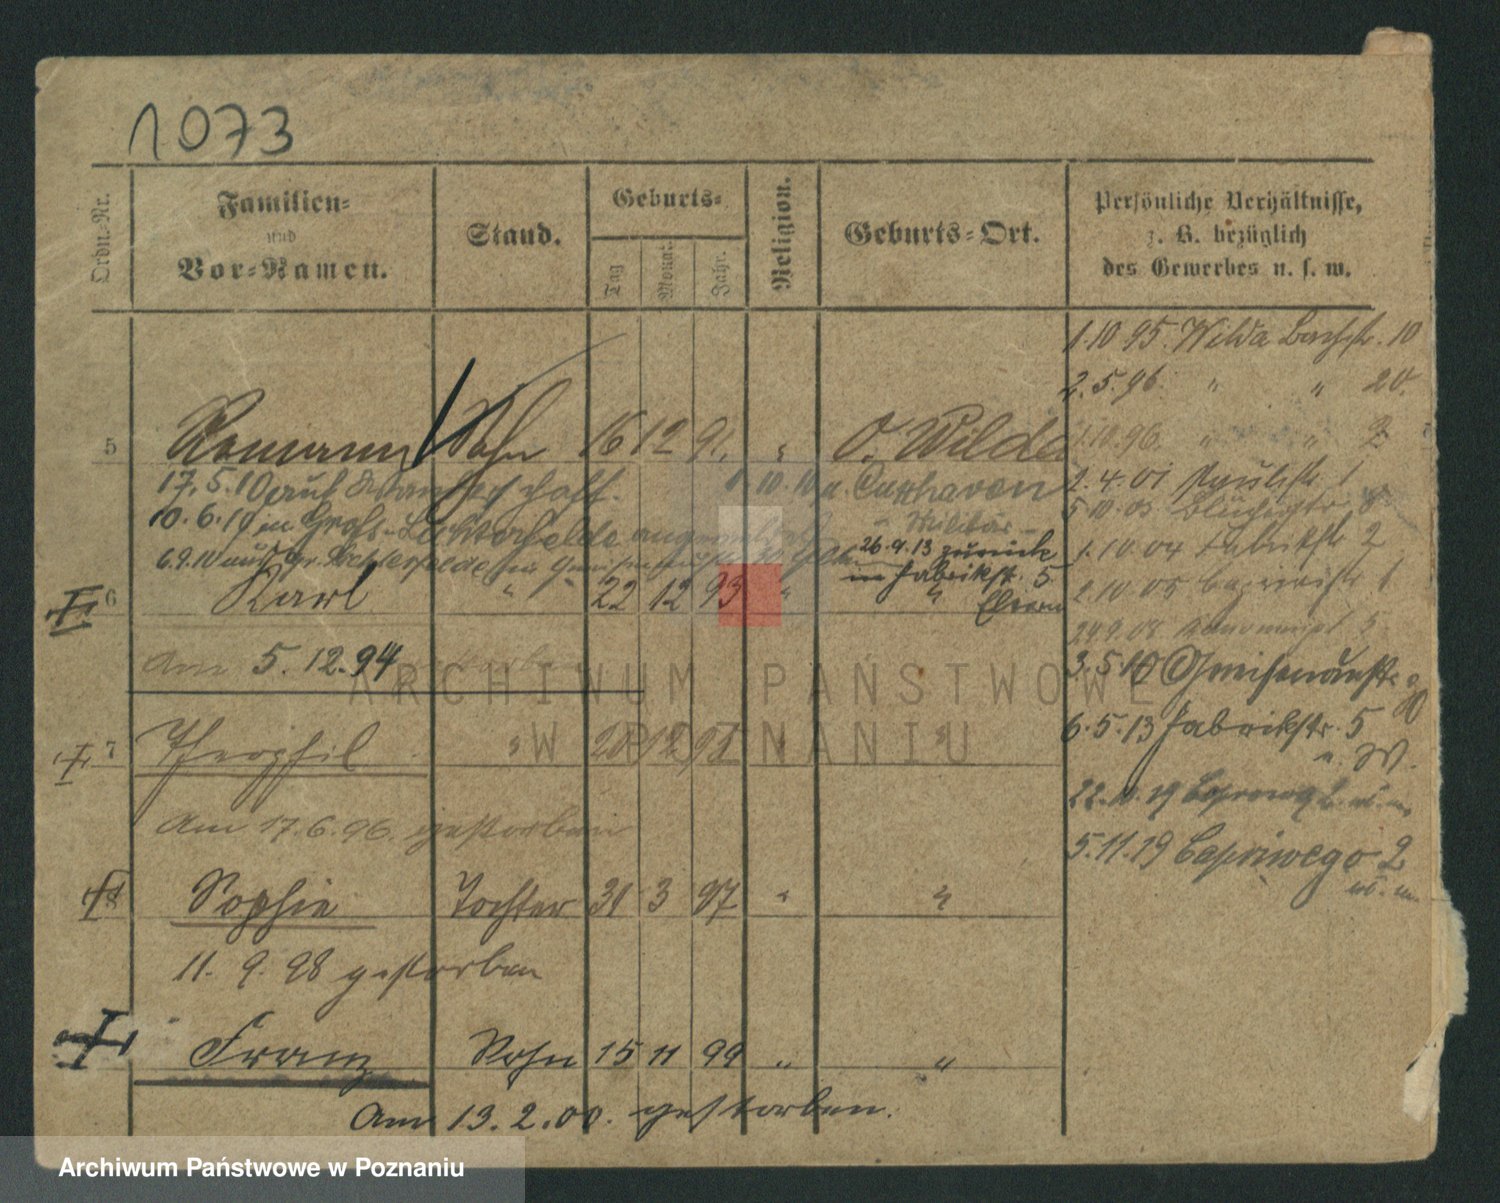 1073
Ordn.-Nr.
Familien-
und
Vor-Namen.
Stand.
Geburts-
Tag
Monat.
Jahr.
Religion.
Geburts-Ort.
Persönliche Verhältnisse,
z. B. bezüglich
des Gewerbes u. s. w.
1.10.95. Wilda Bachstr. 10
2.5.96. " " 20.
5 Romann Sohn 16 12 91. " O. Wilda
1.10.96. " " 2
17.5.10 auf 1.10.10 n. Cuxhaven
2.4.01 1
10.6.10 in Groß-Lichterfelde
Militär
5.10.03 8
26.9.13 zurück
6.9.10 aus Gr. Lichterfelde
1.10.04 Fabrikstr 2
in Fabrikstr. 5
Eltern
6 Karl " " 22 12 93 " "
2.10.05 Caprivistr 1
24.9.08 5
Am 5.12.94
3.5.10 Gneisenaustr.
7 Theophil " 20 12 "
6.5.13 Fabrikstr. 5
n. W.
22.10.19
Am 17.6.96. gestorben
5.11.19 Capriwego 2
8 Sophie Tochter 31 3 97 " "
11. 9. 98 gestorben
Franz Sohn 15 11 99 " "
Am 13.2.00. gestorben.
ARCHIWUM PAŃSTWOWE
W POZNANIU
Archiwum Państwowe w Poznaniu